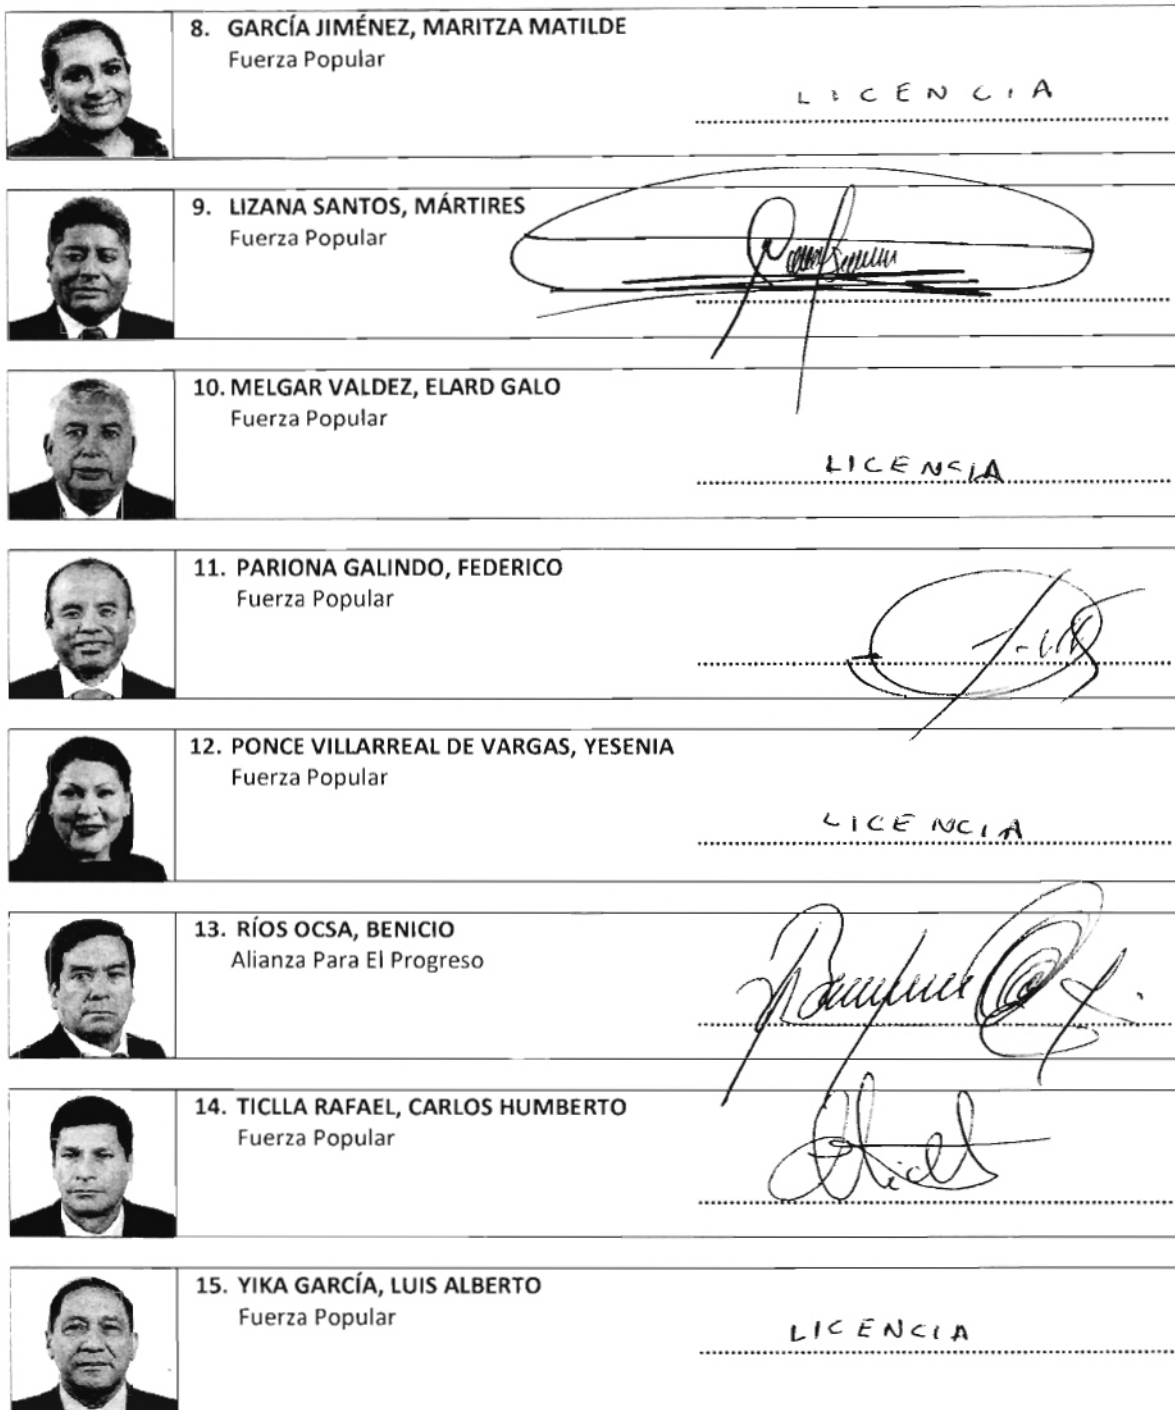 8. GARCÍA JIMÉNEZ, MARITZA MATILDE
Fuerza Popular
LICENCIA
9. LIZANA SANTOS, MÁRTIRES
Fuerza Popular
10. MELGAR VALDEZ, ELARD GALO
Fuerza Popular
LICENCIA
11. PARIONA GALINDO, FEDERICO
Fuerza Popular
12. PONCE VILLARREAL DE VARGAS, YESENIA
Fuerza Popular
LICENCIA
13. RÍOS OCSA, BENICIO
Alianza Para El Progreso
14. TICLLA RAFAEL, CARLOS HUMBERTO
Fuerza Popular
15. YIKA GARCÍA, LUIS ALBERTO
Fuerza Popular
LICENCIA